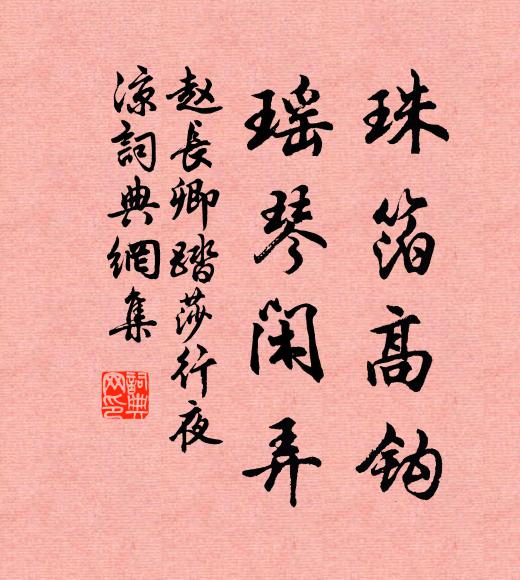 珠箔高鈎
瑶琴閑弄
赵長卿踏莎行夜
凉詞典網集
詞典
网印